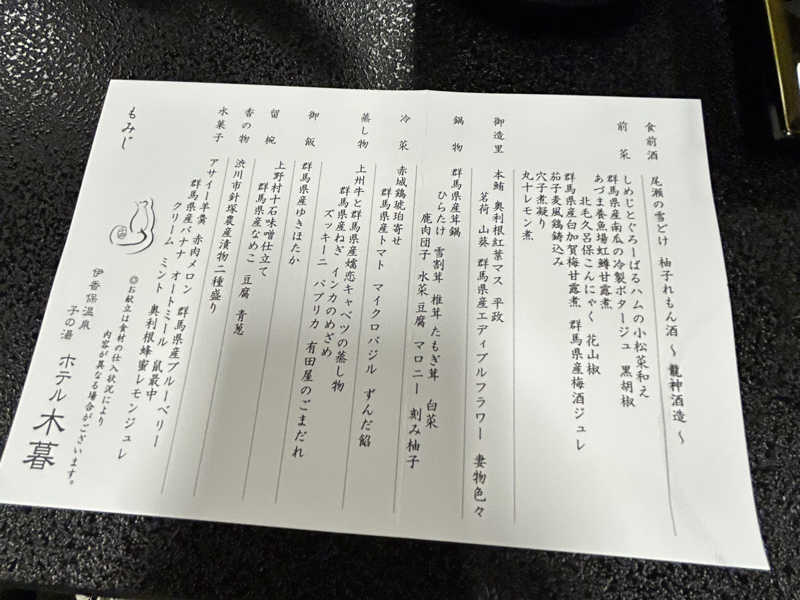 食前酒 尾瀬の雪どけ 柚子れもん酒 ~ 龍神酒造 ~
前菜 しめじとぐろーばるハムの小松菜和え
群馬県産南瓜の冷製ポタージュ 黒胡椒
あづま養魚場虹鱒甘露煮
北毛久呂保こんにゃく 花山椒
群馬県産白加賀梅甘露煮 群馬県産梅酒ジュレ
茄子麦風鶏鋳込み
穴子煮凝り
丸十レモン煮
御造里 本鮪 奥利根紅葉マス 平政
茗荷 山葵 群馬県産エディブルフラワー 妻物色々
鍋物 群馬県産茸鍋
ひらたけ 雪割茸 椎茸 たもぎ茸 白菜
鹿肉団子 水菜 豆腐 マロニー 刻み柚子
冷菜 赤城鶏琥珀寄せ
群馬県産トマト マイクロバジル ずんだ餡
蒸し物 上州牛と群馬県産嬬恋キャベツの蒸し物
群馬県産ねぎ インカのめざめ
ズッキーニ パプリカ 有田屋のごまだれ
御飯 群馬県産ゆきほたか
留椀 上野村十石味噌仕立て
群馬県産なめこ 豆腐 青葱
香の物 渋川市針塚農産漬物二種盛り
水菓子 アサイー羊羹 赤肉メロン 群馬県産ブルーベリー
群馬県産バナナ オートミール 鼠最中
クリーム ミント 奥利根蜂蜜レモンジュレ
もみじ
◎お献立は食材の仕入状況により
内容が異なる場合がございます。
伊香保温泉
子の湯 ホテル木暮